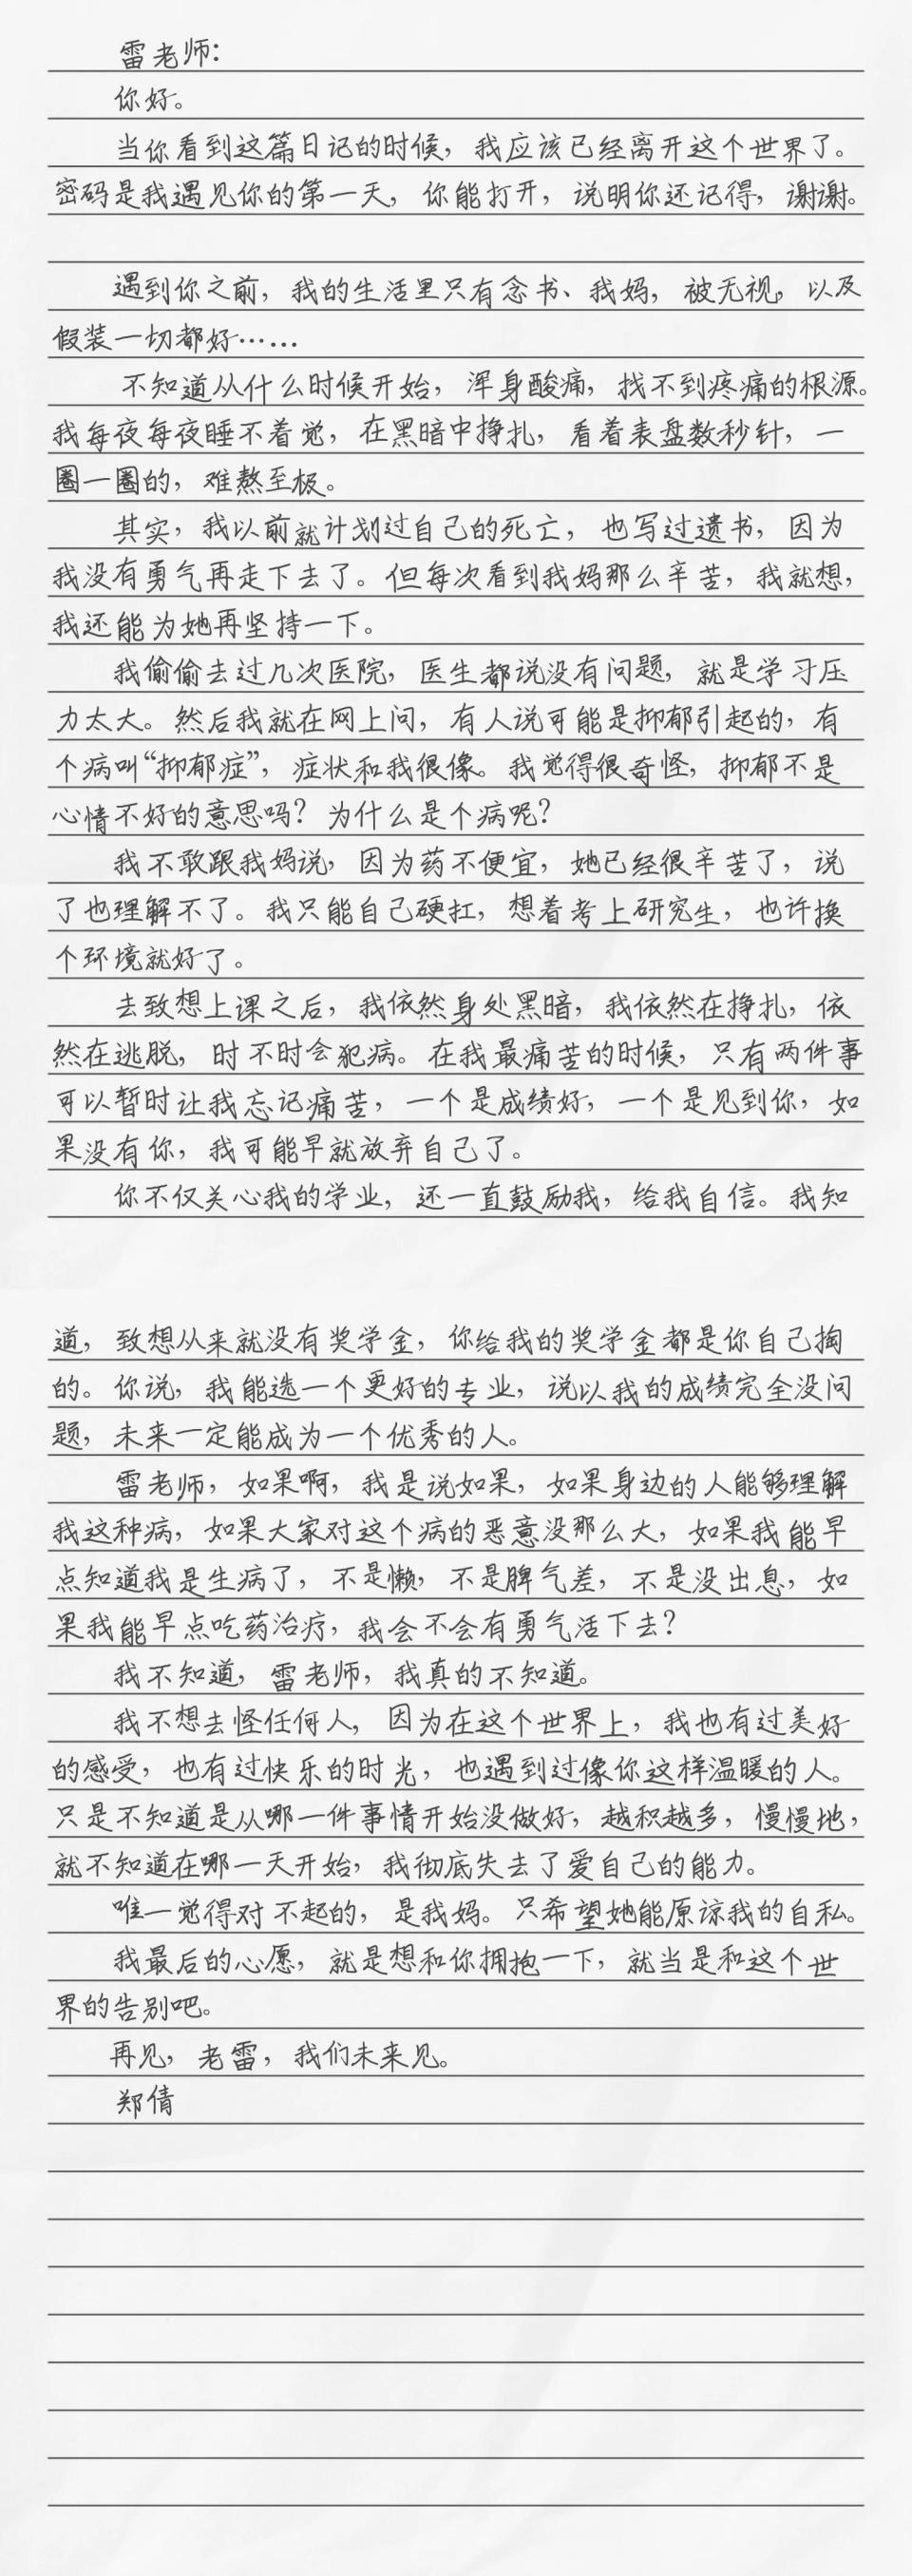 雷老师：
你好。
当你看到这篇日记的时候，我应该已经离开这个世界了。
密码是我遇见你的第一天，你能打开，说明你还记得，谢谢。
遇到你之前，我的生活里只有念书、我妈，被无视，以及
假装一切都好……
不知道从什么时候开始，浑身酸痛，找不到疼痛的根源。
我每夜每夜睡不着觉，在黑暗中挣扎，看着表盘数秒针，一
圈一圈的，难熬至极。
其实，我以前就计划过自己的死亡，也写过遗书，因为
我没有勇气再走下去了。但每次看到我妈那么辛苦，我就想，
我还能为她再坚持一下。
我偷偷去过几次医院，医生都说没有问题，就是学习压
力太大。然后我就在网上问，有人说可能是抑郁引起的，有
个病叫“抑郁症”，症状和我很像。我觉得很奇怪，抑郁不是
心情不好的意思吗？为什么是个病呢？
我不敢跟我妈说，因为药不便宜，她已经很辛苦了，说
了也理解不了。我只能自己硬扛，想着考上研究生，也许换
个环境就好了。
去致想上课之后，我依然身处黑暗，我依然在挣扎，依
然在逃脱，时不时会犯病。在我最痛苦的时候，只有两件事
可以暂时让我忘记痛苦，一个是成绩好，一个是见到你，如
果没有你，我可能早就放弃自己了。
你不仅关心我的学业，还一直鼓励我，给我自信。我知
道，致想从来就没有奖学金，你给我的奖学金都是你自己掏
的。你说，我能选一个更好的专业，说以我的成绩完全没问
题，未来一定能成为一个优秀的人。
雷老师，如果啊，我是说如果，如果身边的人能够理解
我这种病，如果大家对这个病的恶意没那么大，如果我能早
点知道我是生病了，不是懒，不是脾气差，不是没出息，如
果我能早点吃药治疗，我会不会有勇气活下去？
我不知道，雷老师，我真的不知道。
我不想去怪任何人，因为在这个世界上，我也有过美好
的感受，也有过快乐的时光，也遇到过像你这样温暖的人。
只是不知道是从哪一件事情开始没做好，越积越多，慢慢地，
就不知道在哪一天开始，我彻底失去了爱自己的能力。
唯一觉得对不起的，是我妈。只希望她能原谅我的自私。
我最后的心愿，就是想和你拥抱一下，就当是和这个世
界的告别吧。
再见，老雷，我们未来见。
郑倩